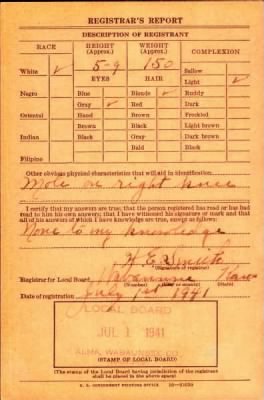 REGISTRAR'S REPORT
DESCRIPTION OF REGISTRANT
RACE HEIGHT (Approx.) WEIGHT (Approx.) COMPLEXION
5-9 150
White ✓ EYES HAIR Sallow
Light ✓
Negro Blue Blonde ✓ Ruddy
Gray ✓ Red Dark
Oriental Hazel Brown Freckled
Brown Black Light brown
Indian Black Gray Dark brown
Bald Black
Filipino
Other obvious physical characteristics that will aid in identification
Mole on right knee
I certify that my answers are true; that the person registered has read or has had
read to him his own answers; that I have witnessed his signature or mark and that
all of his answers of which I have knowledge are true, except as follows:
None to my knowledge
H E Smith
(Signature of registrar)
Registrar for Local Board Wabaunsee Kans
(Number) (City or county) (State)
Date of registration July 1st 1941
LOCAL BOARD
JUL 1 1941
ALMA, WABAUNSEE
(STAMP OF LOCAL BOARD)
(The stamp of the Local Board having jurisdiction of the registrant
shall be placed in the above space)
U. S. GOVERNMENT PRINTING OFFICE